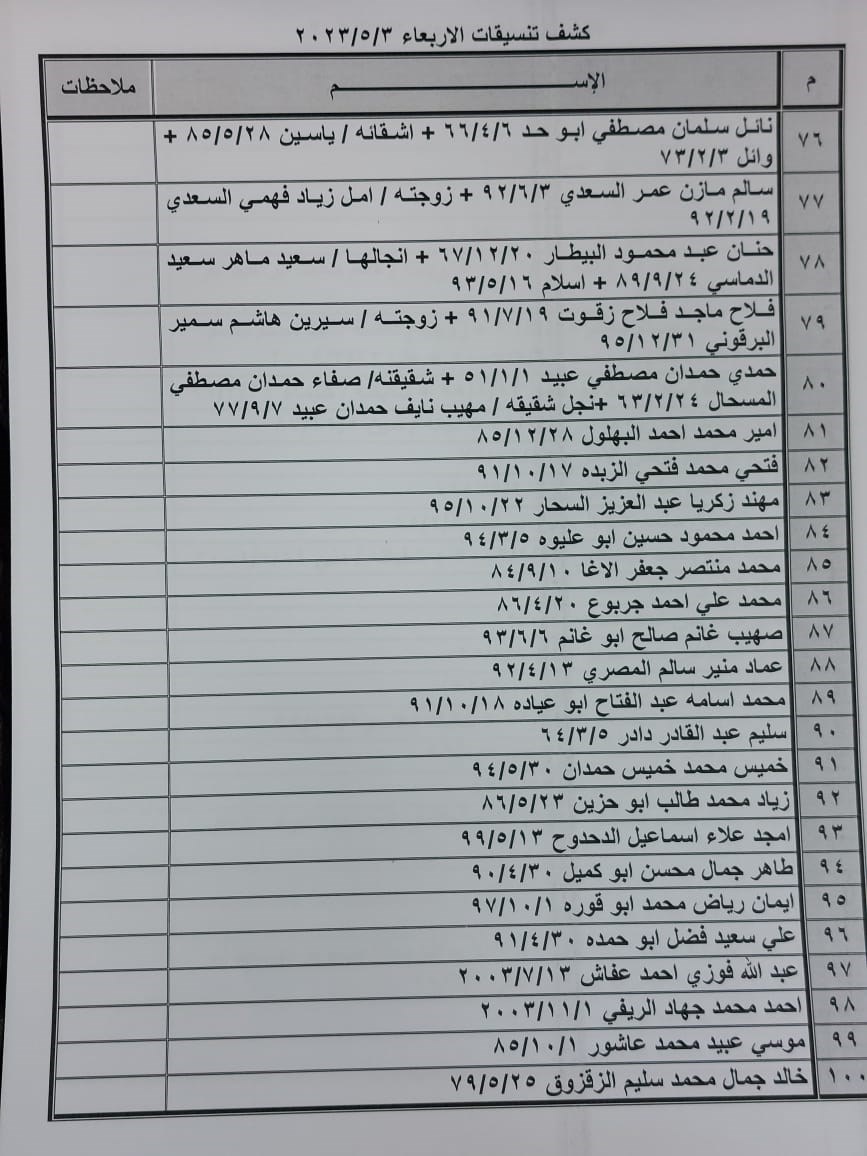 كشف تنسيقات الاربعاء ٢٠٢٣/٥/٣
م الإســـــم ملاحظات
٧٦ نائل سلمان مصطفي ابو حد ٦٦/٤/٦ + اشقائه / ياسين ٨٥/٥/٢٨ +
وائل ٧٣/٢/٣
٧٧ سالم مازن عمر السعدي ٩٢/٦/٣ + زوجته / امل زياد فهمي السعدي
٩٢/٢/١٩
٧٨ حنان عبد محمود البيطار ٦٧/١٢/٢٠ + انجالها / سعيد ماهر سعيد
الدماسي ٨٩/٩/٢٤ + اسلام ٩٣/٥/١٦
٧٩ فلاح ماجد فلاح زقوت ٩١/٧/١٩ + زوجته / سيرين هاشم سمير
البرقوني ٩٥/١٢/٣١
٨٠ حمدي حمدان مصطفي عبيد ٥١/١/١ + شقيقته/ صفاء حمدان مصطفي
المسحال ٦٣/٢/٢٤ +نجل شقيقه / مهيب نايف حمدان عبيد ٧٧/٩/٧
٨١ امير محمد احمد البهلول ٨٥/١٢/٢٨
٨٢ فتحي محمد فتحي الزبده ٩١/١٠/١٧
٨٣ مهند زكريا عبد العزيز السحار ٩٥/١٠/٢٢
٨٤ احمد محمود حسين ابو عليوه ٩٤/٣/٥
٨٥ محمد منتصر جعفر الاغا ٨٤/٩/١٠
٨٦ محمد علي احمد جربوع ٨٦/٤/٢٠
٨٧ صهيب غانم صالح ابو غانم ٩٣/٦/٦
٨٨ عماد منير سالم المصري ٩٢/٤/١٣
٨٩ محمد اسامه عبد الفتاح ابو عياده ٩١/١٠/١٨
٩٠ سليم عبد القادر دادر ٦٤/٣/٥
٩١ خميس محمد خميس حمدان ٩٤/٥/٣٠
٩٢ زياد محمد طالب ابو حزين ٨٦/٥/٢٣
٩٣ امجد علاء اسماعيل الدحدوح ٩٩/٥/١٣
٩٤ طاهر جمال محسن ابو كميل ٩٠/٤/٣٠
٩٥ ايمان رياض محمد ابو قوره ٩٧/١٠/١
٩٦ علي سعيد فضل ابو حمده ٩١/٤/٣٠
٩٧ عبد الله فوزي احمد عفاش ٢٠٠٣/٧/١٣
٩٨ احمد محمد جهاد الريفي ٢٠٠٣/١١/١
٩٩ موسي عبيد محمد عاشور ٨٥/١٠/١
١٠٠ خالد جمال محمد سليم الزقزوق ٧٩/٥/٢٥